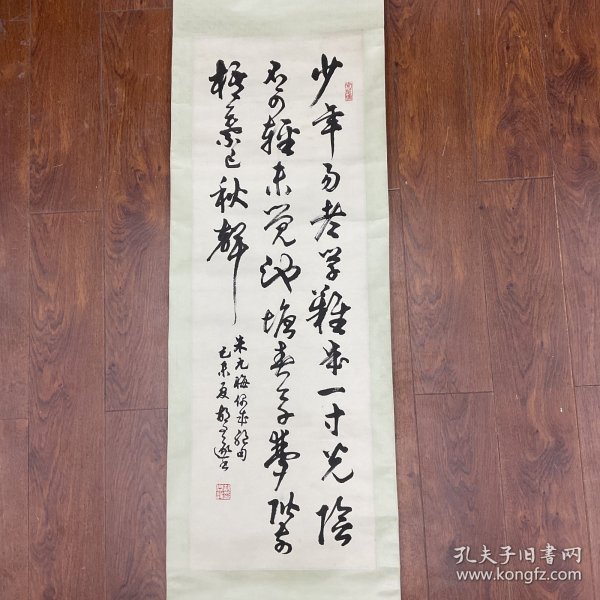 少年易老学難成一寸光陰
不可輕未覚池塘春草夢階前
梧葉已秋聲
朱元晦偶成詩句
己未夏
孔夫子旧書网
www.kongfz.com